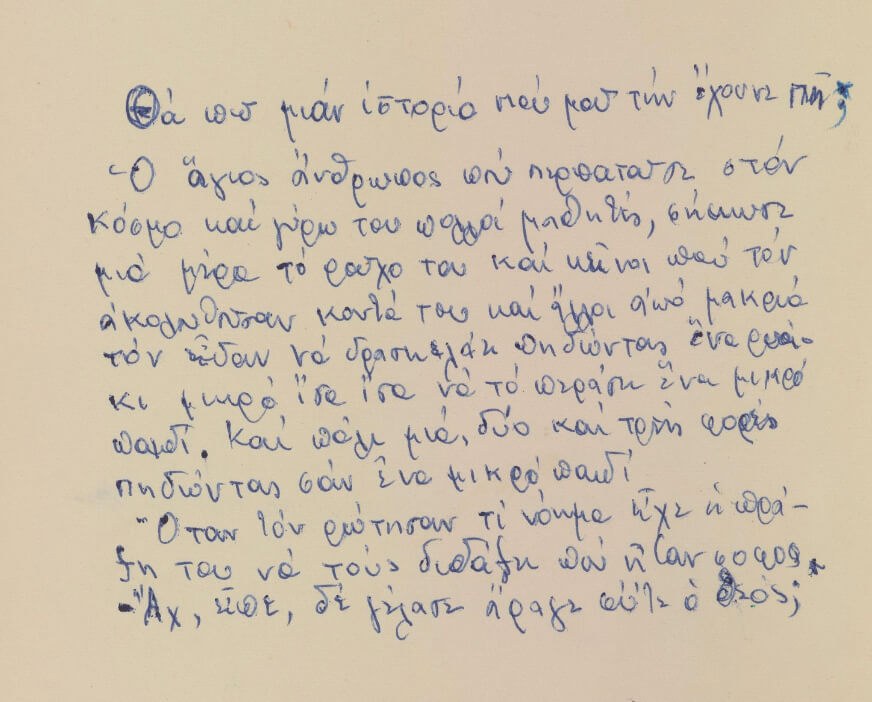 Θά πῶ μιάν ἱστορία πού μοῦ τήν ἔχουνε πῆ;
Ὁ ἅγιος ἄνθρωπος πού περπατοῦσε στόν
κόσμο καί γύρω του πολλοί μαθητές, σήκωσε
μιά μέρα τό ροῦχο του καί κεῖνοι πού τόν
ἀκολουθοῦσαν κοντά του καί ἄλλοι ἀπό μακριά
τόν εἶδαν νά δρασκελάη πηδώντας ἕνα ρυά-
κι μικρό ἴσα ἴσα νά τό περάση ἕνα μικρό
παιδί. Καί πάλι μιά, δύο καί τρεῖς φορές
πηδώντας σάν ἕνα μικρό παιδί
Ὅταν τόν ρώτησαν τί νόημα εἶχε ἡ πρά-
ξη του νά τούς διδάξη πού ἦταν σοφοί.
-Ἄχ, εἶπε, δέ γέλασε ἄραγε οὔτε ὁ θεός;